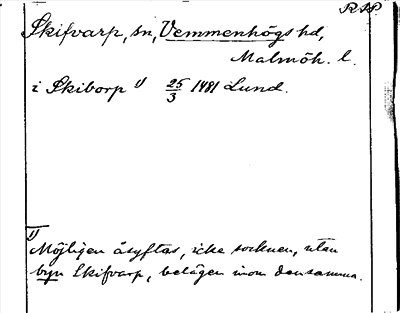 R.S.P.
Skifvarp, sn, Vemmenhögs hd,
Malmöh. l.
i Skiborp 1) 25/3 1481 Lund.
1)
Möjligen åsyftas, icke socknen, utan
byn Skifvarp, belägen inom densamma.